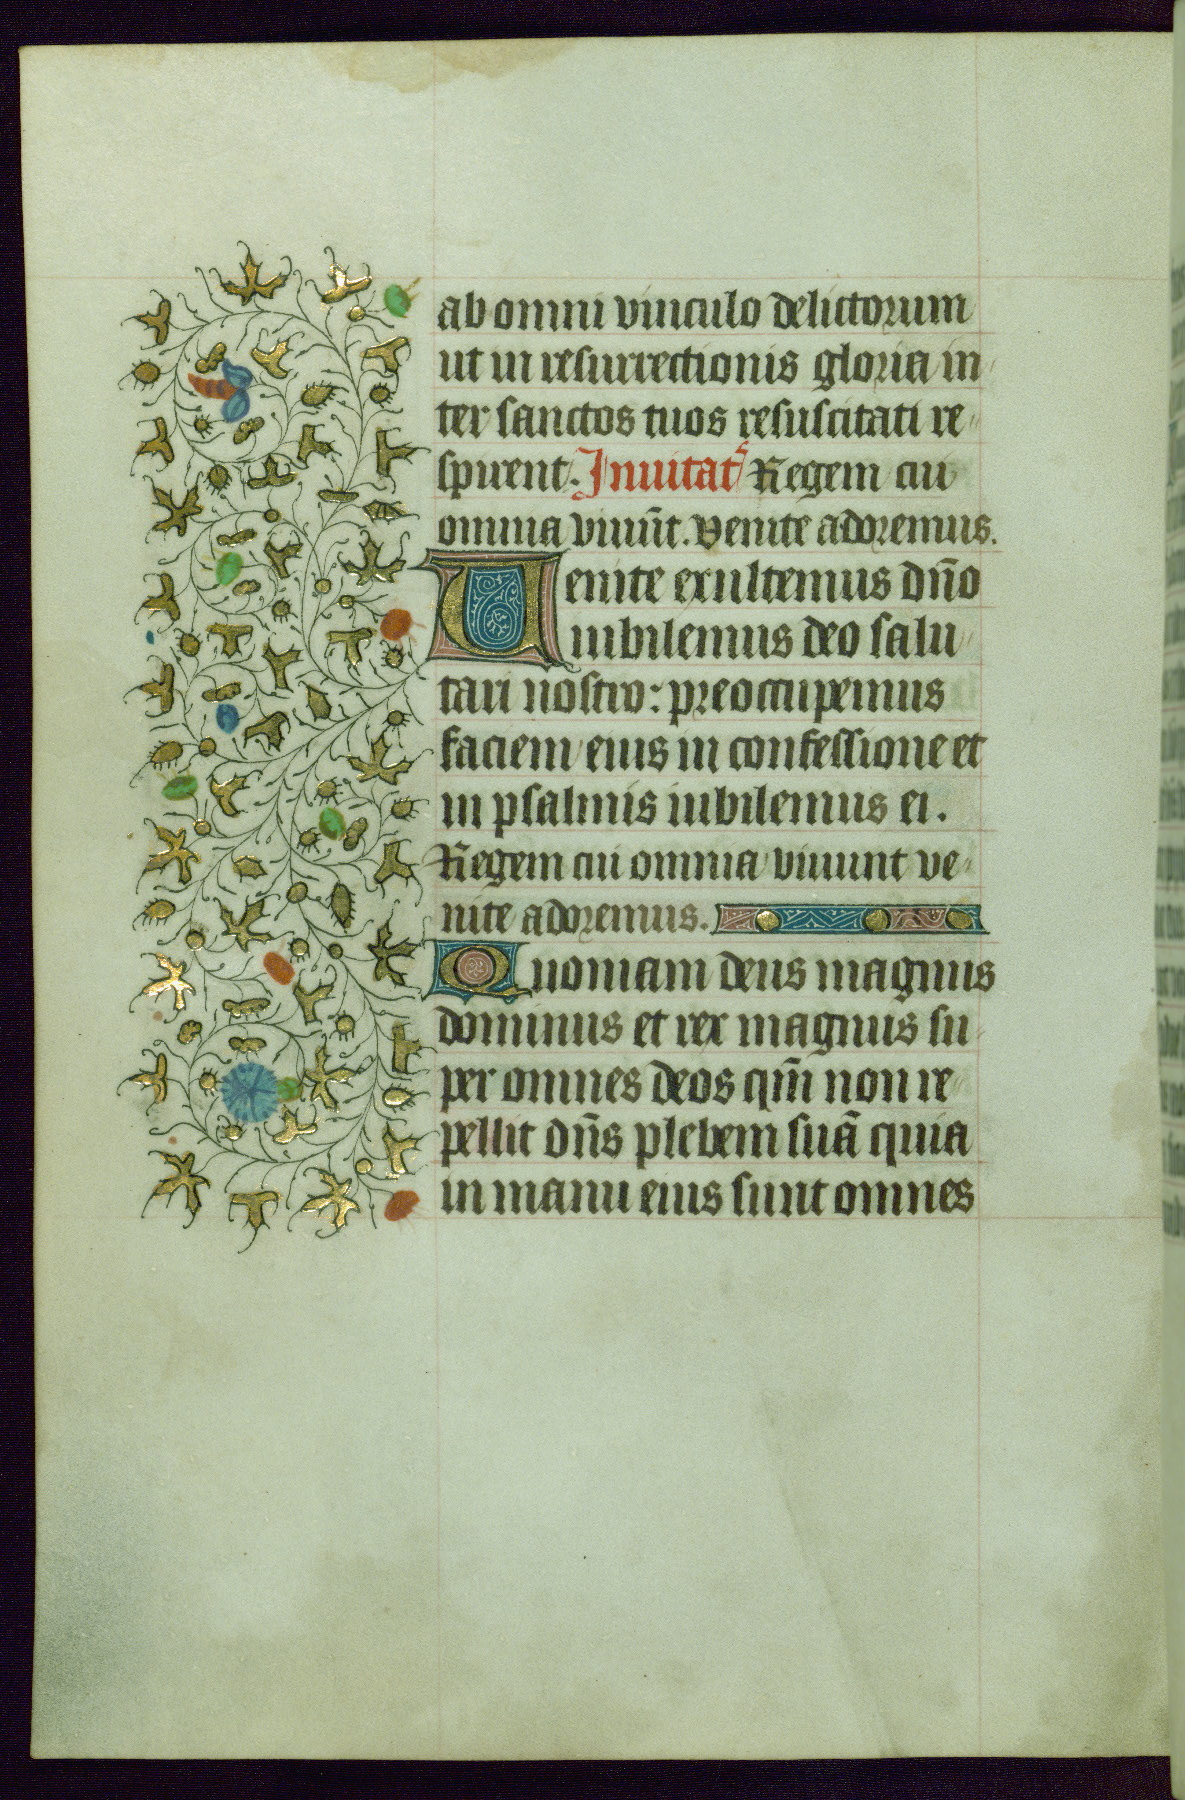 ab omni vinculo delictorum
ut in resurrectionis gloria in
ter sanctos tuos resuscitati re
spirent. Inuitat᷒ Regem cui
omnia viuūt. Venite adoremus.
Uenite exultemus dn̄o
iubilemus deo salu
tari nostro: preoccupemus
faciem eius in confessione et
in psalmis iubilemus ei.
Regem cui omnia viuunt ve
nite adoremus.
Quoniam deus magnus
dominus et rex magnus su
per omnes deos qm̄ non re
pellit dn̄s plebem suā quia
in manu eius sunt omnes